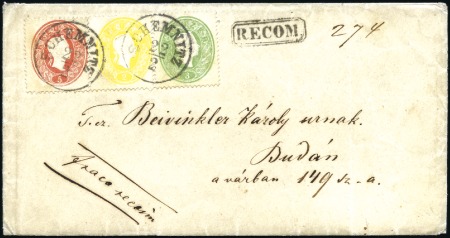 SCHEMNITZ
SCHEMNITZ
RECOM.
274
Beivinkler Károly urnak.
Budán
a várban 149 sz-a.
recom